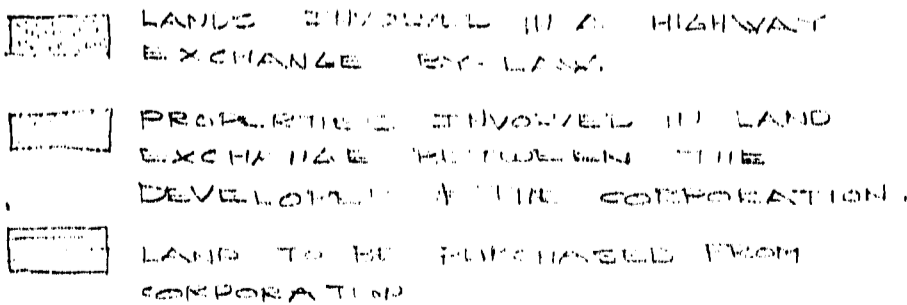 LANDS INVOLVED IN A HIGHWAY
EXCHANGE BY-LAW.
PROPERTIES INVOLVED IN LAND
EXCHANGE BETWEEN THE
DEVELOPER & THE CORPORATION.
LAND TO BE PURCHASED FROM
CORPORATION